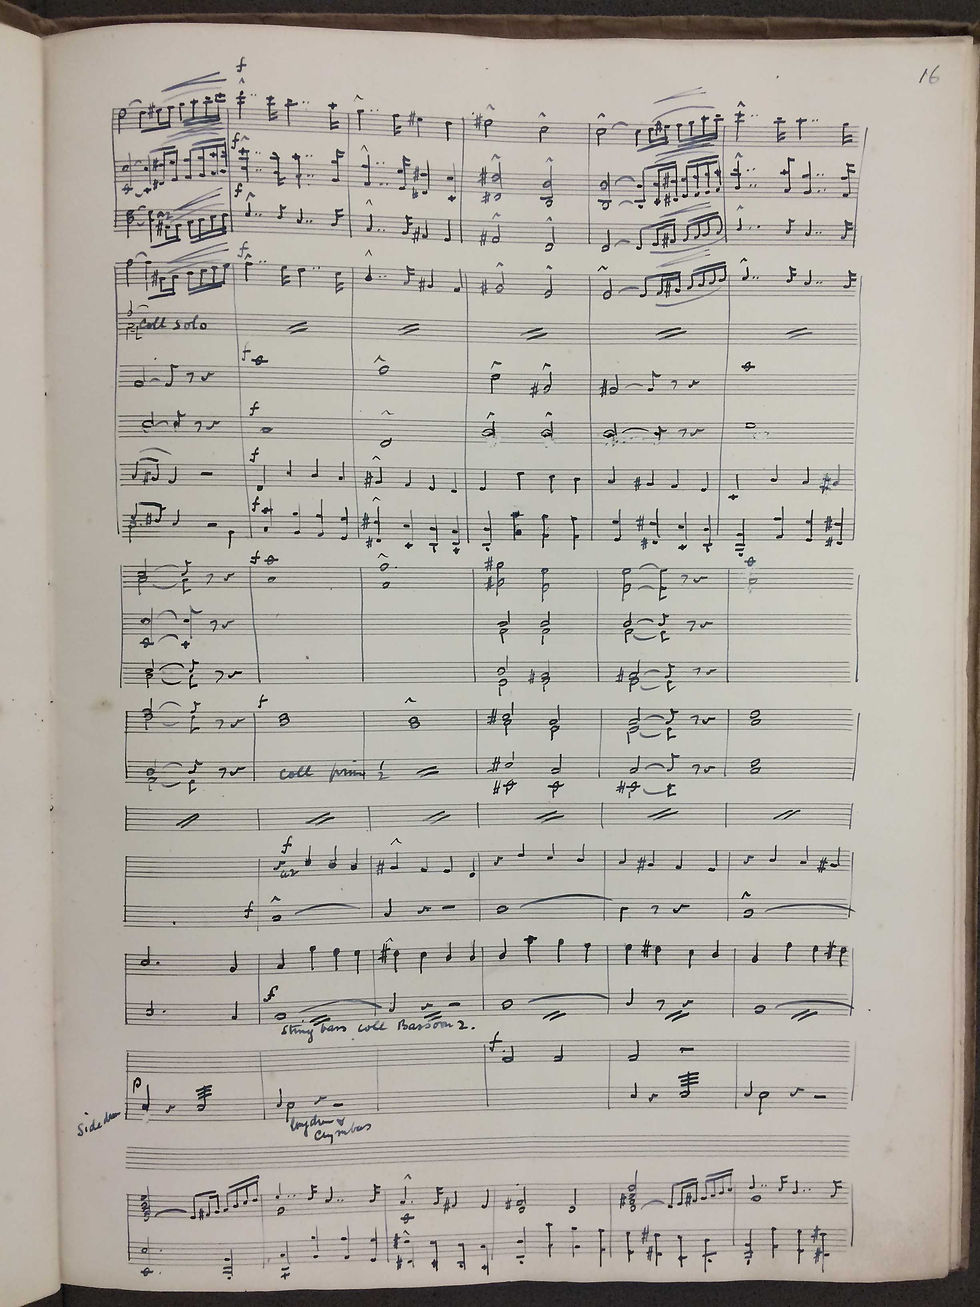 16
f
f
f
f
a2
coll solo
f
f
f
f
f
f
coll prima
f
a2
f
f
String bass coll Bassoon 2.
f
p
Side drum
Cymbals